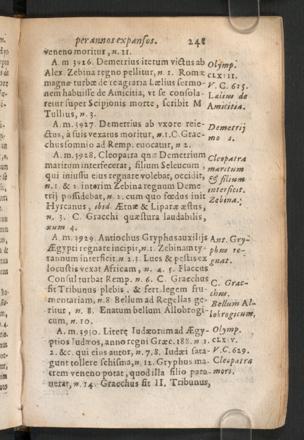 per annos expansos. 248
veneno moritur, n. 11.
A. m 3926. Demetrius iterum victus ab
Alex. Zebina regno pellitur, n. 1. Romæ
magnæ turbæ de reagraria Lælius sermo-
nem habuisse de Amicitia, ut se consola-
retur super Scipionis morte, scribit M
Tullius, n. 3.
A. m. 3927. Demetrius ab uxore reie-
ctus, à suis vexatus moritur, n. 1. C. Grac-
chus somnio ad Remp. evocatur, n. 2.
A. m. 3928. Cleopatra quæ Demetrium
maritum interfecerat, filium Seleucum,
qui iniussu eius regnare volebat, occidit,
n. 1. & 2 interim Zebina regnum Deme-
trij possidebat, n. 2. cum quo fœdus init
Hyrcanus, ibid. Ætnæ & Liparæ æstus,
n. 3. C. Gracchi quæstura laudabilis,
num 4.
A. m. 3929. Antiochus Gryphus auxilijs
Ægypti regnare incipit, n. 1. Zebinam ty-
rannum interficit n. 2 3. Lues & pestis ex
locustis vexat Africam, n. 4. 5. Flaccus
Consul turbat Remp. n. 6. C. Gracchus
fit Tribunus plebis, & fert legem fru-
mentariam, n. 8 Bellum ad Regellas ge-
ritur, n. 8. Enatum bellum Allobrogi-
cum, n. 10.
A. m. 3930. Literę Iudæorum ad Ægy-
ptios Iudæos, anno regni Græc. 188. n 1.
2. &c. qui eius autor, n. 7. 8. Iudæi sata-
gunt tollere schisma, n. 12. Gryphus ma-
trem veneno potat, quod illa filio para-
verat, n. 14. Gracchus fit II. Tribunus,
Olymp.
CLXIII.
V. C. 625.
Lælius de
Amicitia.
Demetrij
mo s.
Cleopatra
maritum
& filium
interficit.
Zebina.
Ant. Gry-
phus re-
gnat.
C. Grac-
chus.
Bellum Al-
lobrogicum,
Olymp.
CLXIV.
V. C. 629.
Cleopatra
mors.